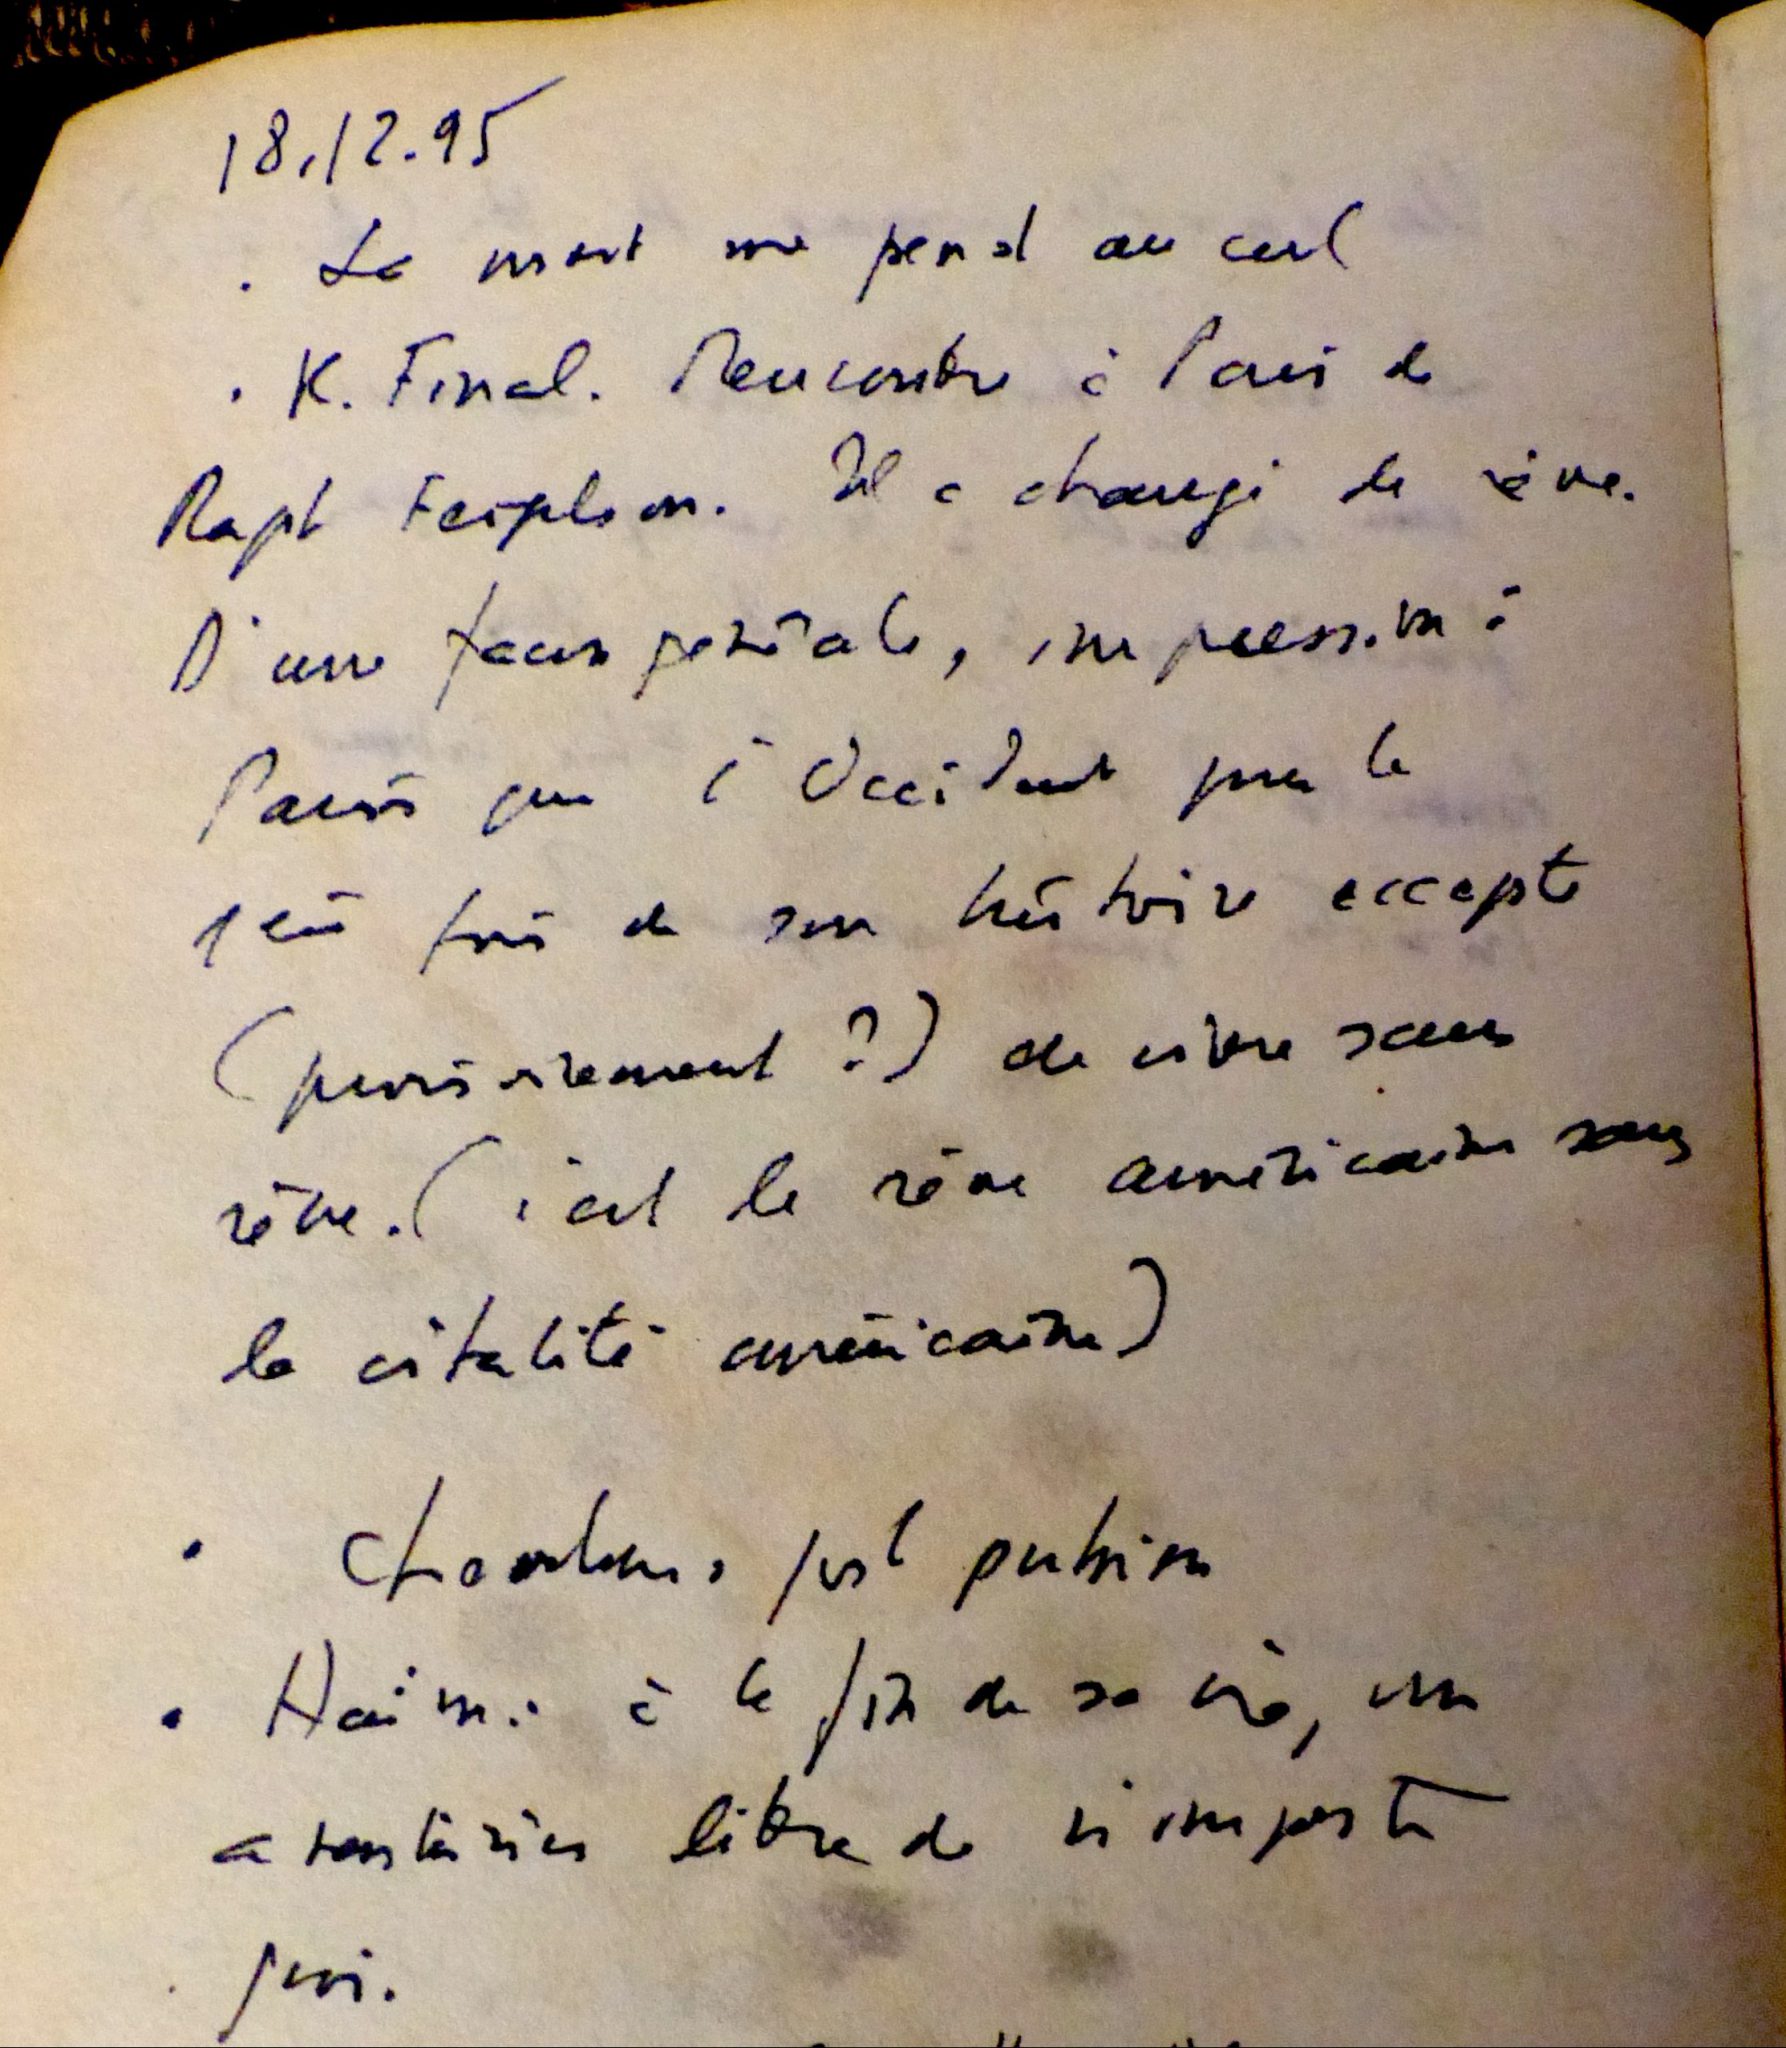 18.12.95
. La mort me pend au cul
. K. Final. Rencontre à Paris de
Raph Il a changé de rêve.
D'une façon générale, impression à
Paris que l'Occident pour la
1ère fois de son histoire accepte
(provisoirement ?) de vivre sans
rêve. (c'est le rêve américain sans
la vitalité américaine)
. post pulsion
. Haïm : à la fin de sa vie, un
libre de n'importe
quoi.